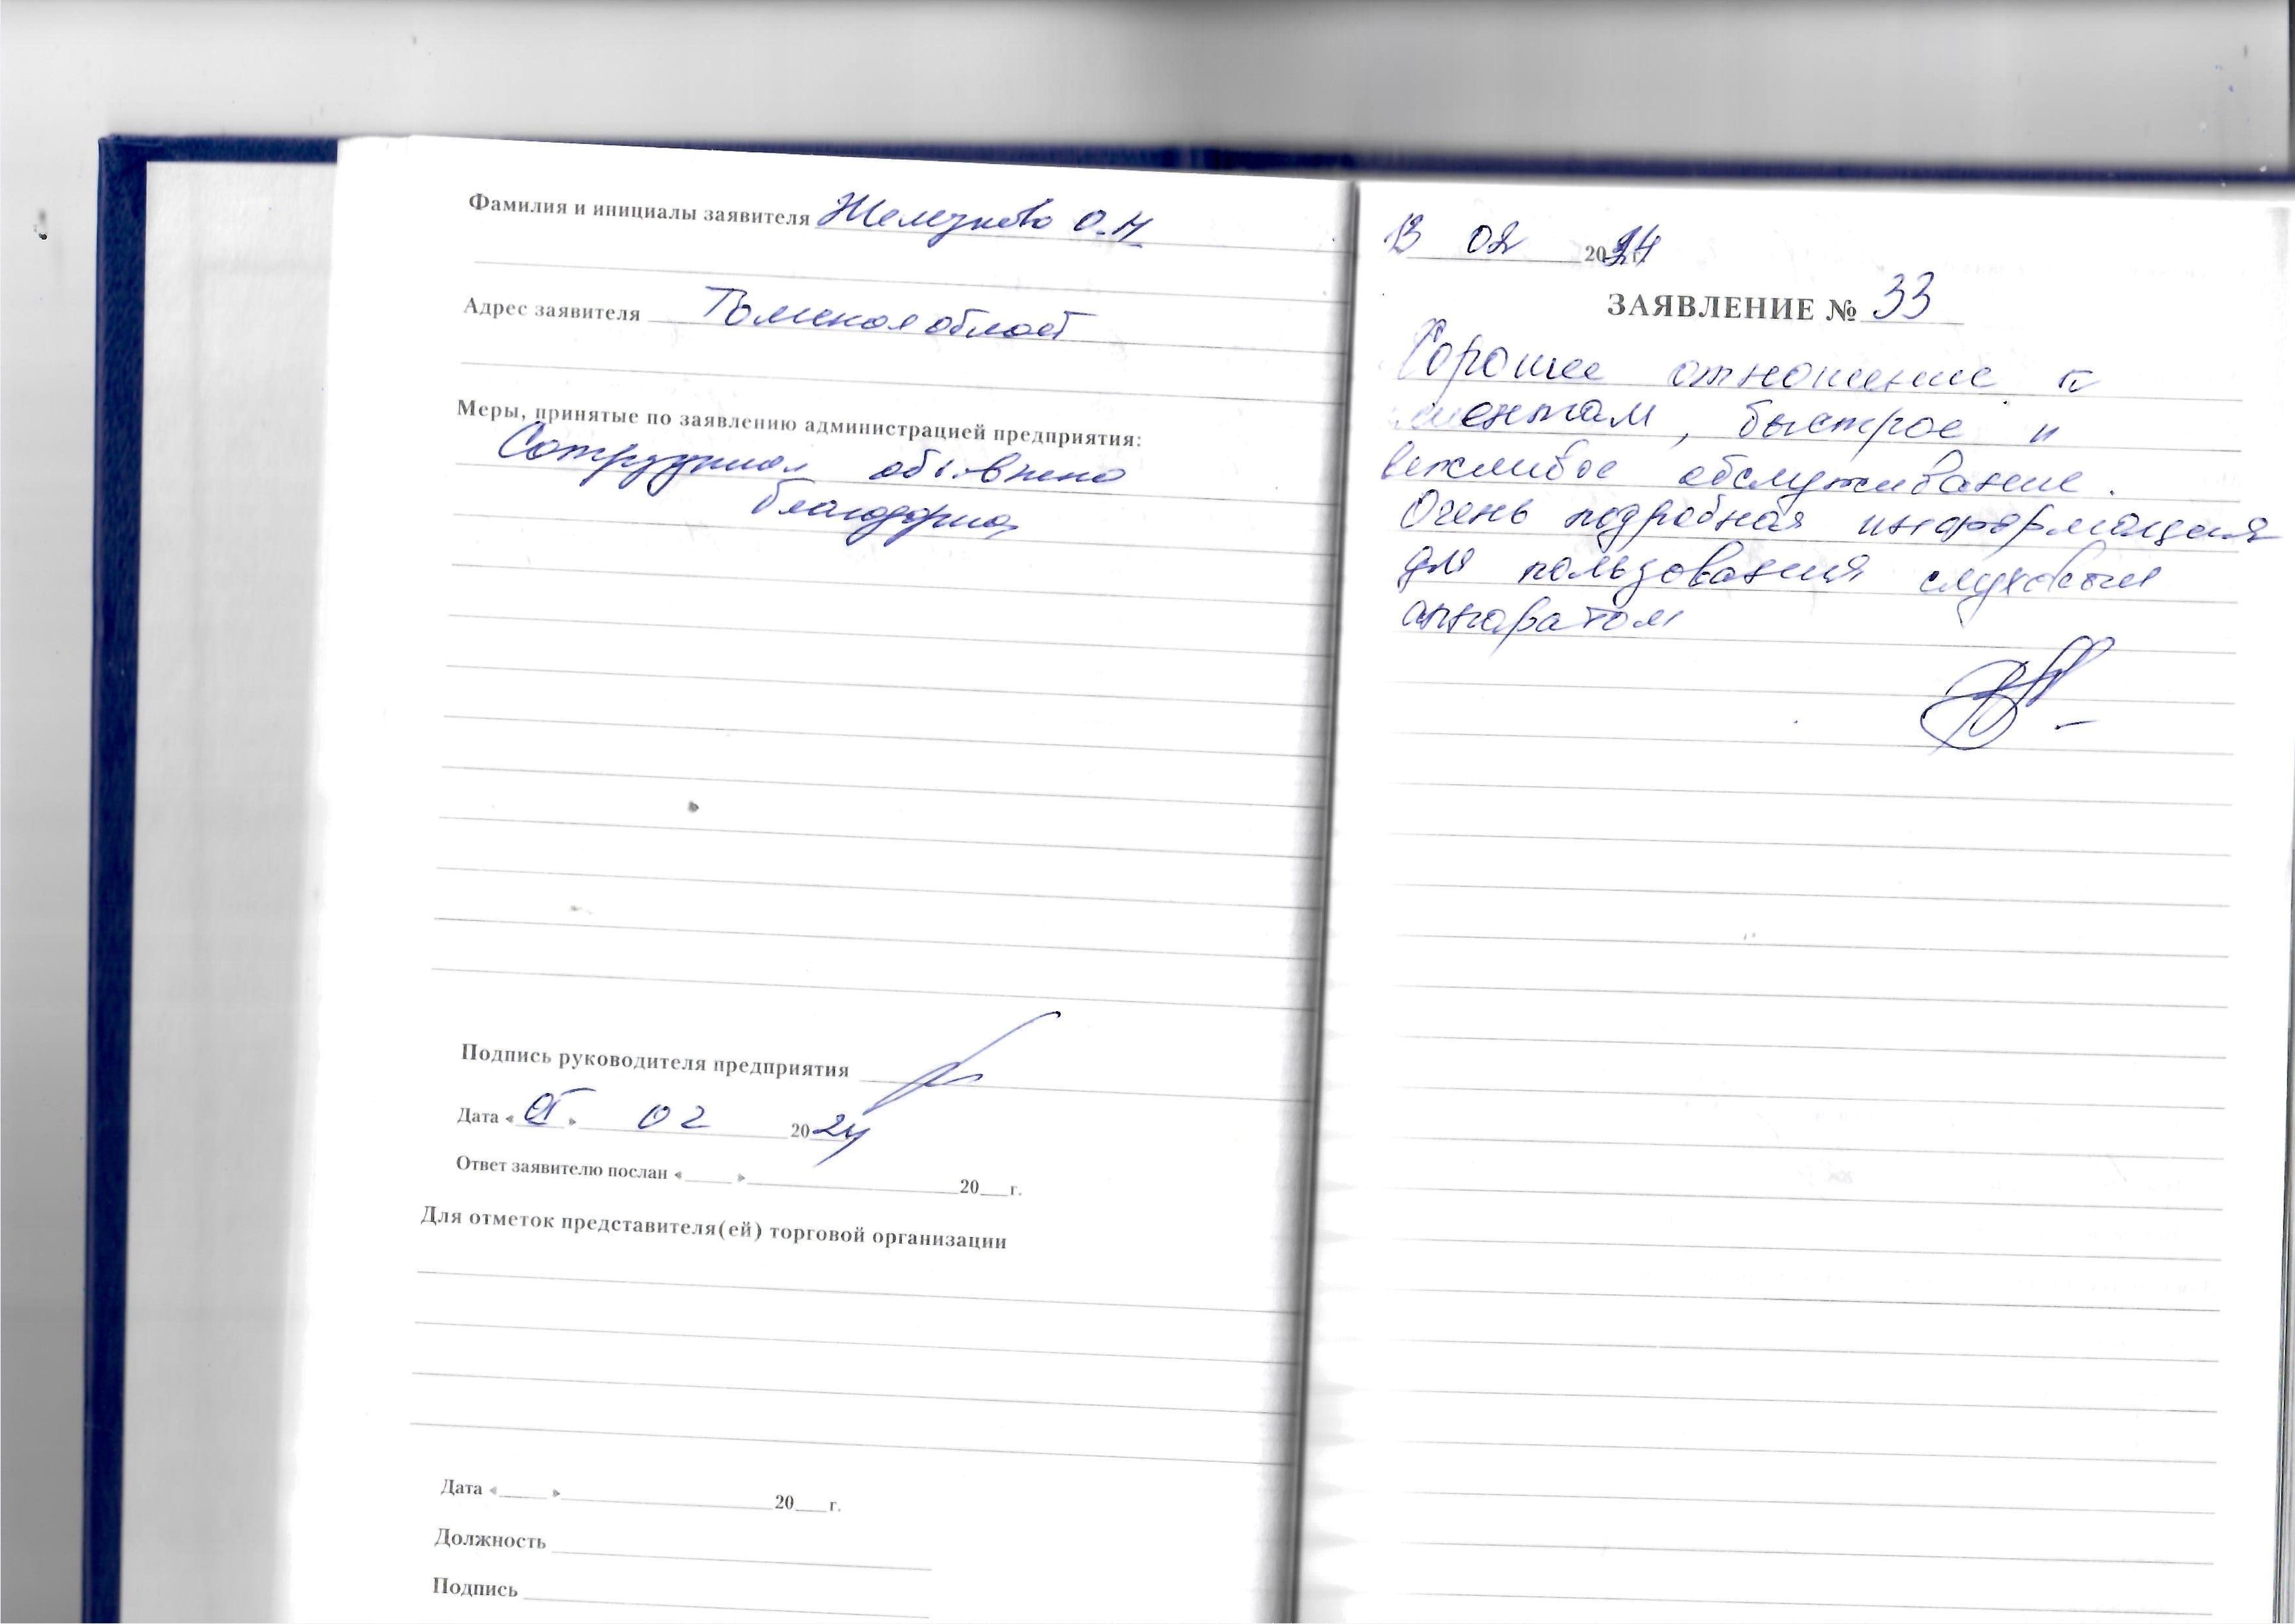 Фамилия и инициалы заявителя Железнова О.Н
Адрес заявителя Томская област
Меры, принятые по заявлению администрацией предприятия:
Сотрудникам объявлена
благодарность
Подпись руководителя предприятия
Дата « 05 » 02 2024
Ответ заявителю послан «____ »____ 20__г.
Для отметок представителя(ей) торговой организации
Дата «____ »____ 20__г.
Должность
Подпись
13 02 2024
ЗАЯВЛЕНИЕ № 33
Хорошее отношение к
клиентам, быстрое и
вежливое обслуживание.
Очень подробная информация
для пользования слуховым
аппаратом